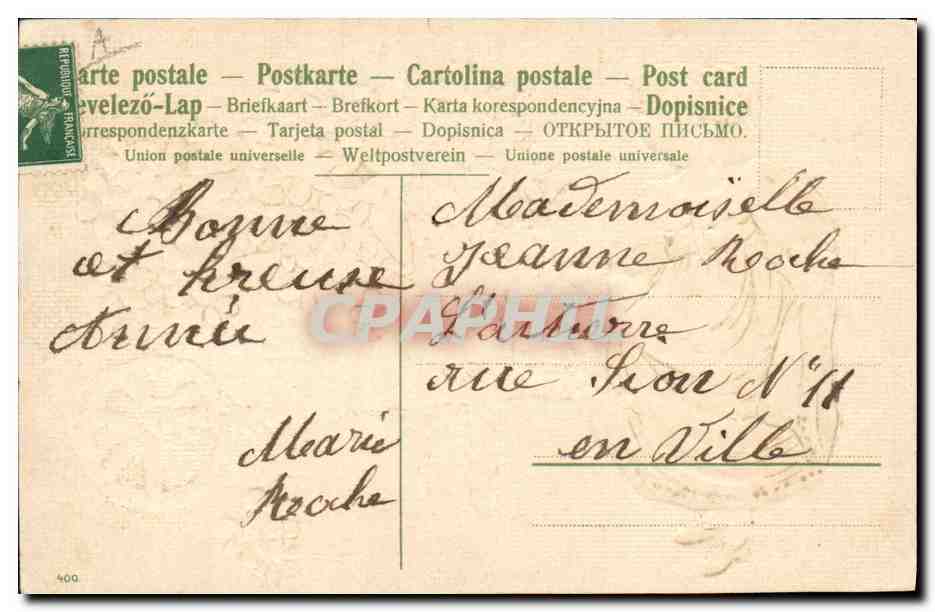 A
REPUBLIQUE FRANÇAISE
arte postale – Postkarte – Cartolina postale – Post card
evelező-Lap – Briefkaart – Brefkort – Karta korespondencyjna – Dopisnice
orrespondenzkarte – Tarjeta postal – Dopisnica – ОТКРЫТОЕ ПИСЬМО.
Union postale universelle – Weltpostverein – Unione postale universale
Bonne
et hreuse
Année
Marie
Roche
Mademoiselle
Jeanne Roche
rue Sion N° 11
en Ville
CPAPHIL
400